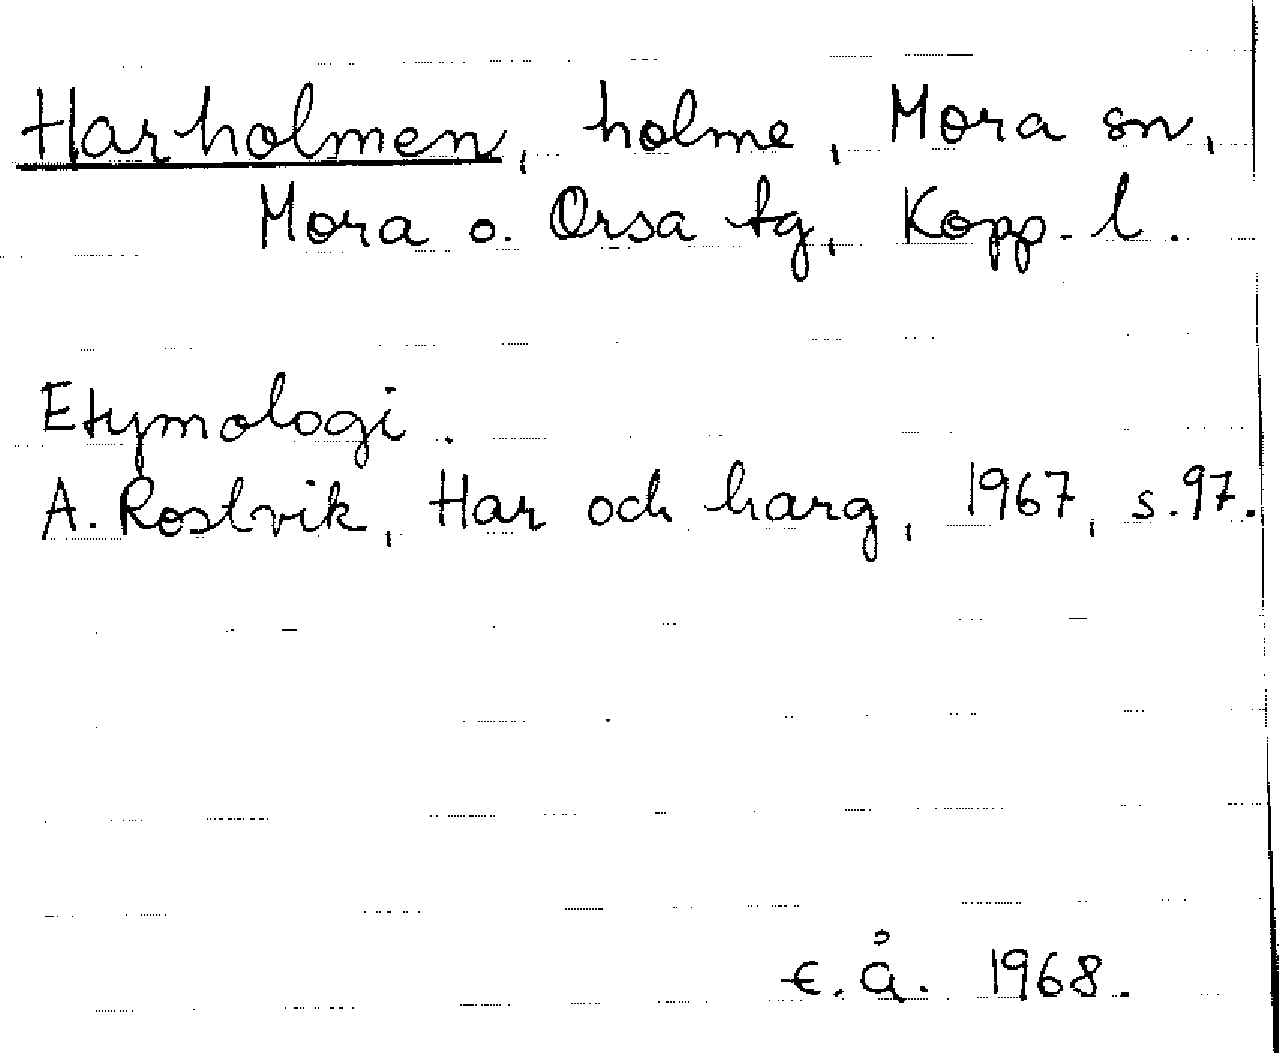 Harholmen, holme, Mora sn,
Mora o. Orsa tg, Kopp. l.
Etymologi.
A. Rostvik, Har och harg, 1967, s. 97.
E. Å. 1968.